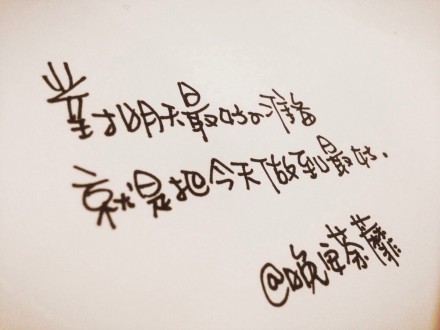 對於明天最好的准备
就是把今天做到最好.
@晚安荼蘼